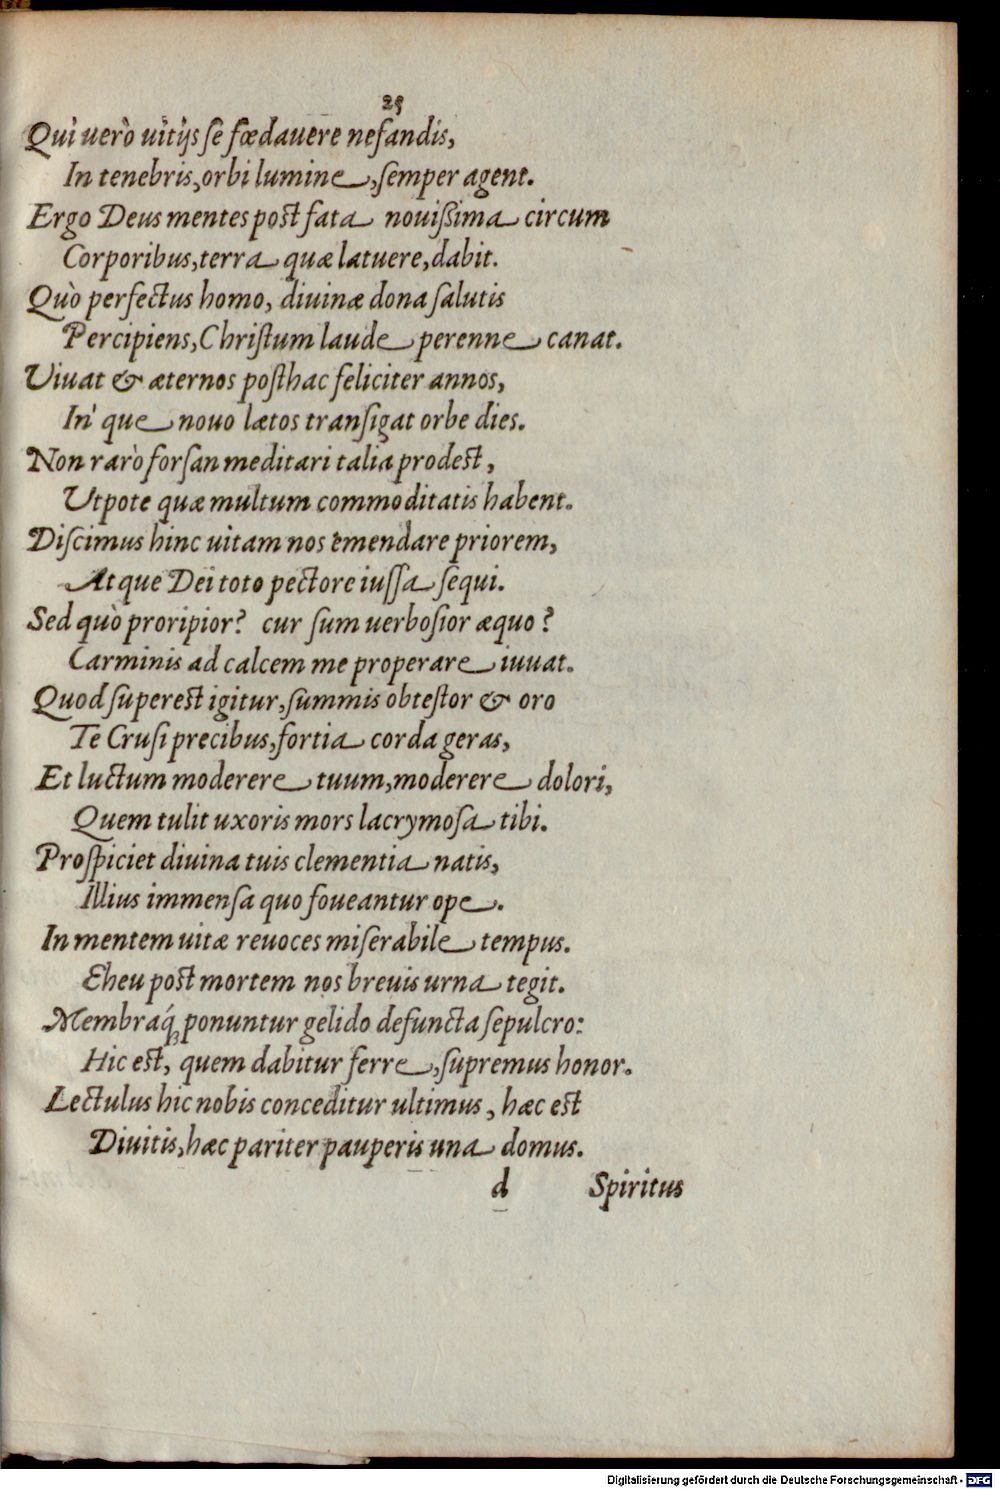 25
Qui uerò uitijs se fœdauere nefandis,
In tenebris, orbi lumine, semper agent.
Ergo Deus mentes post fata nouißima circum
Corporibus, terra quæ latuere, dabit.
Quò perfectus homo, diuinæ dona salutis
Percipiens, Christum laude perenne canat.
Viuat & æternos posthac feliciter annos,
In' que nouo lætos transigat orbe dies.
Non rarò forsan meditari talia prodest,
Vtpote quæ multum commoditatis habent.
Discimus hinc uitam nos emendare priorem,
Atque Dei toto pectore iussa sequi.
Sed quò proripior? cur sum uerbosior æquo?
Carminis ad calcem me properare iuuat.
Quod superest igitur, summis obtestor & oro
Te Crusi precibus, fortia corda geras,
Et luctum moderere tuum, moderere dolori,
Quem tulit uxoris mors lacrymosa tibi.
Prospiciet diuina tuis clementia natis,
Illius immensa quo foueantur ope.
In mentem uitæ reuoces miserabile tempus.
Eheu post mortem nos breuis urna tegit.
Membraq́; ponuntur gelido defuncta sepulcro:
Hic est, quem dabitur ferre, supremus honor.
Lectulus hic nobis conceditur ultimus, hæc est
Diuitis, hæc pariter pauperis una domus.
d Spiritus
Digitalisierung gefördert durch die Deutsche Forschungsgemeinschaft - DFG